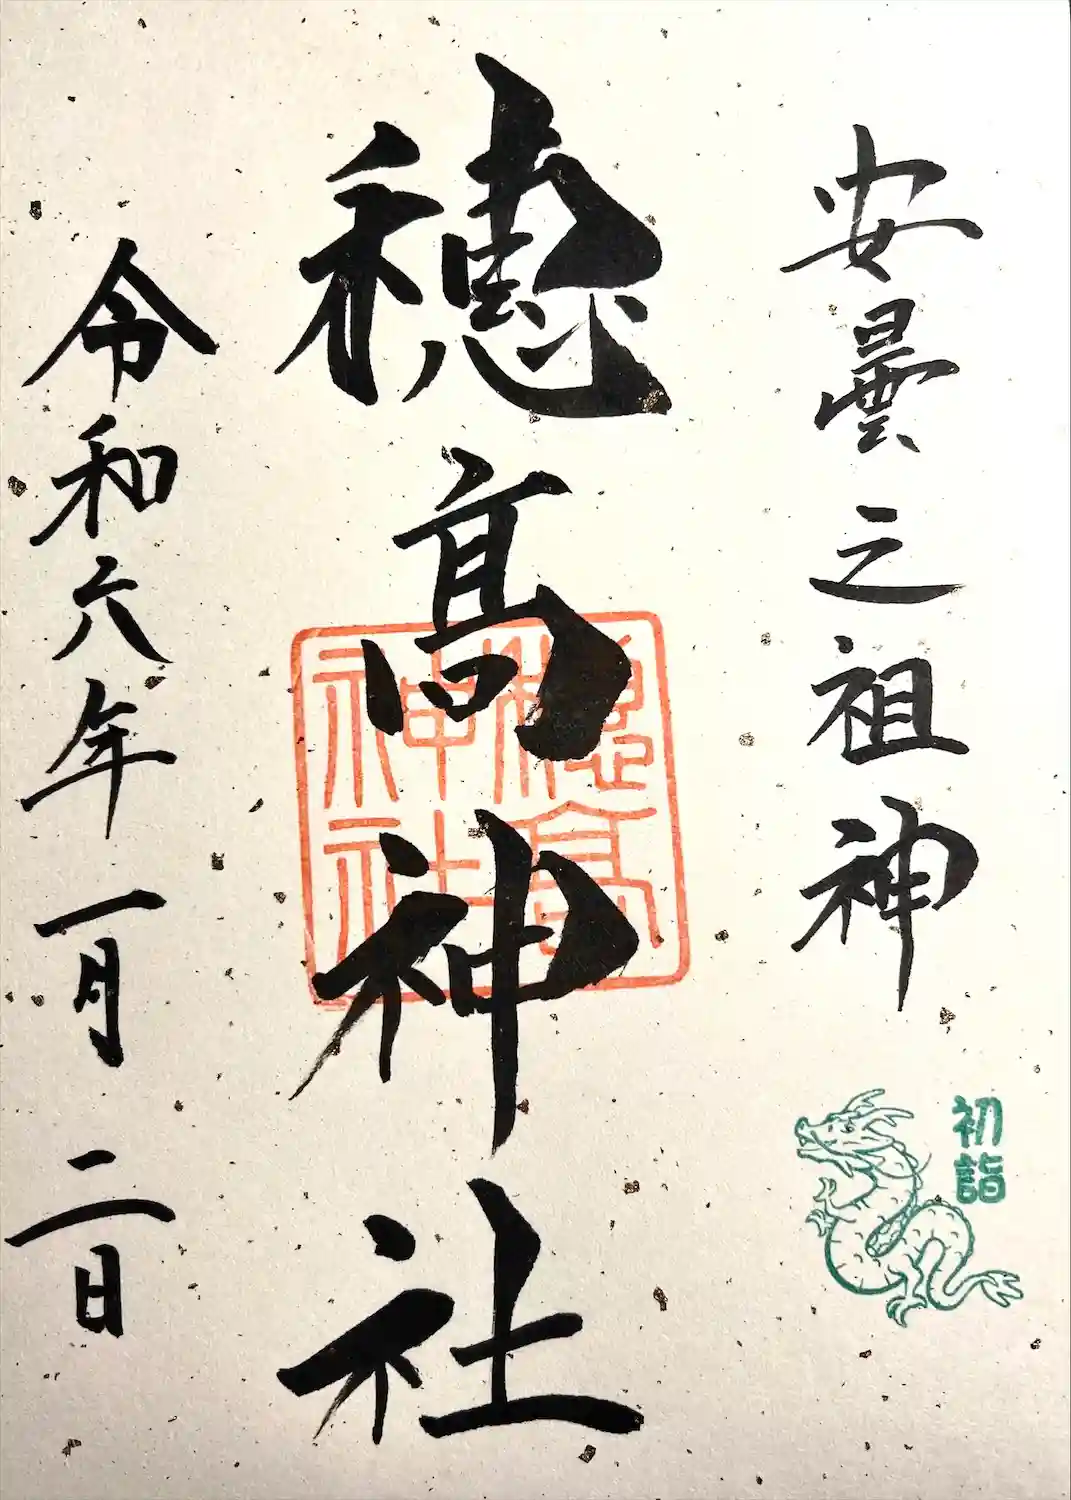 安曇之祖神
初詣
穂髙神社
穂高
神社
令和六年一月二日